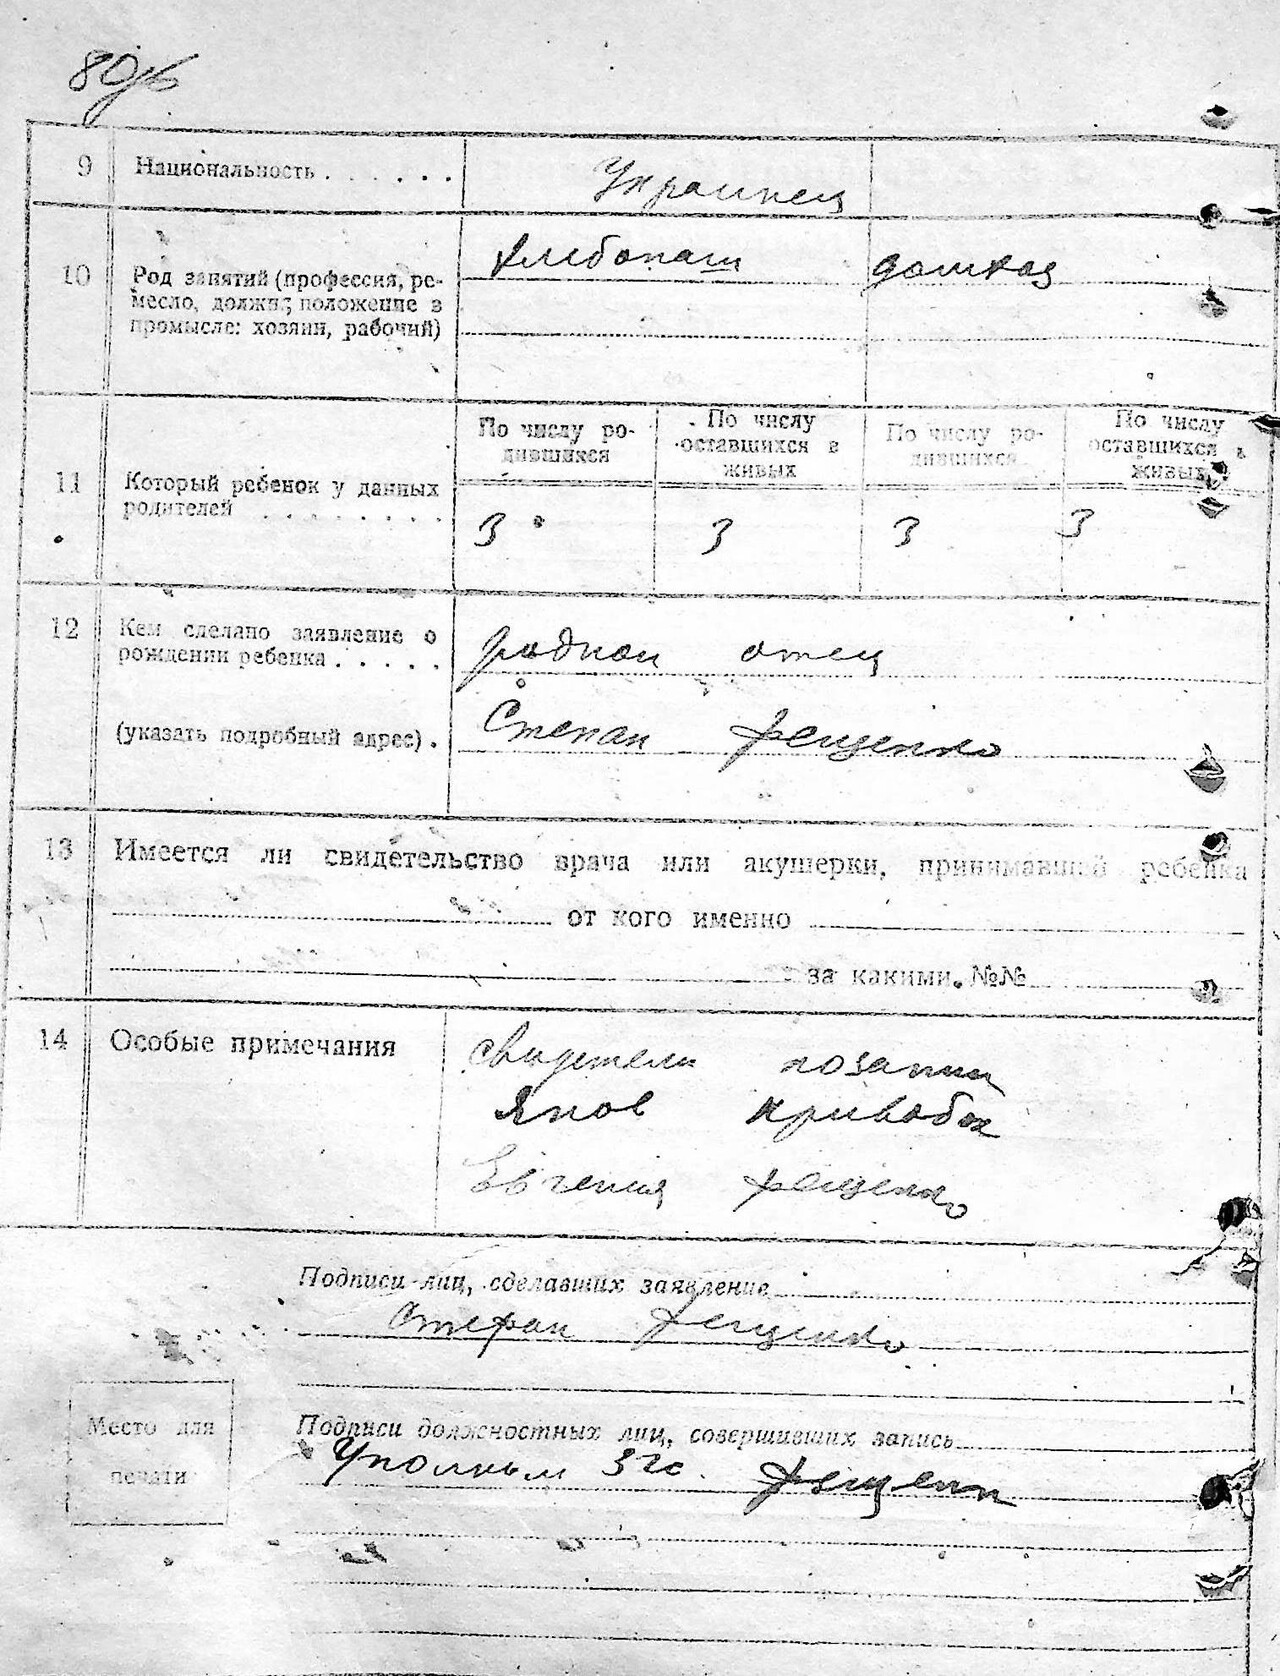 80
9 Национальность . . . . . . Украинец
10 Род занятий (профессия, ре-
месло, должн., положение в
промысле: хозяин, рабочий)
Хлебопаш домхоз
11 Который ребенок у данных
родителей . . . . . . . .
По числу ро-
дившихся
По числу
оставшихся в
живых
По числу ро-
дившихся
По числу
оставшихся в
живых
3 3 3 3
12 Кем сделано заявление о
рождении ребенка . . . . .
родной отец
(указать подробный адрес) .
Степан Фещенко
13 Имеется ли свидетельство врача или акушерки, принимавшей ребенка
от кого именно
за какими №№
14 Особые примечания
свидетели
Яков Кривобок
Евгения Фещенко
Подписи лиц, сделавших заявление
Стефан Фещенко
Место для
печати
Подписи должностных лиц, совершивших запись
Уполном Загс. Фещенко